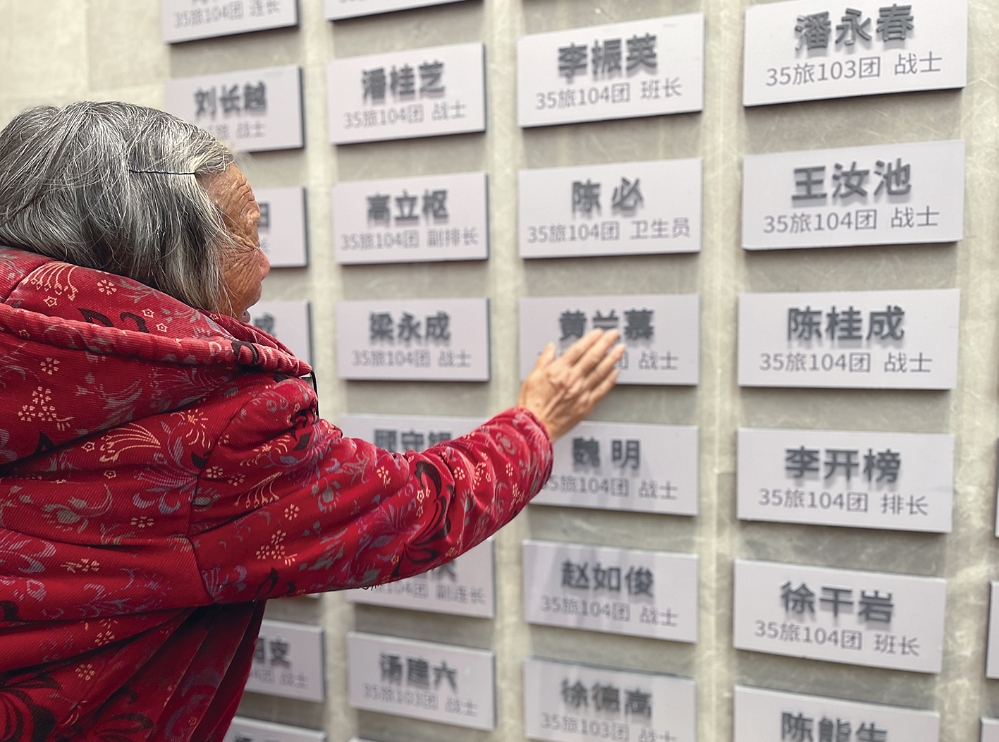 35旅104团 连长
35旅104团
刘长越
战士
潘桂芝
35旅104团 战士
李振英
35旅104团 班长
潘永春
35旅103团 战士
高立枢
35旅104团 副排长
陈 必
35旅104团 卫生员
王汝池
35旅104团 战士
梁永成
35旅104团 战士
黄兰慕
战士
陈桂成
35旅104团 战士
魏 明
35旅104团 战士
李开榜
35旅104团 排长
副连长
赵如俊
35旅104团 战士
徐干岩
35旅104团 班长
战士
汤建六
35旅103团 战士
徐德高
35旅103团 战士
陈能生